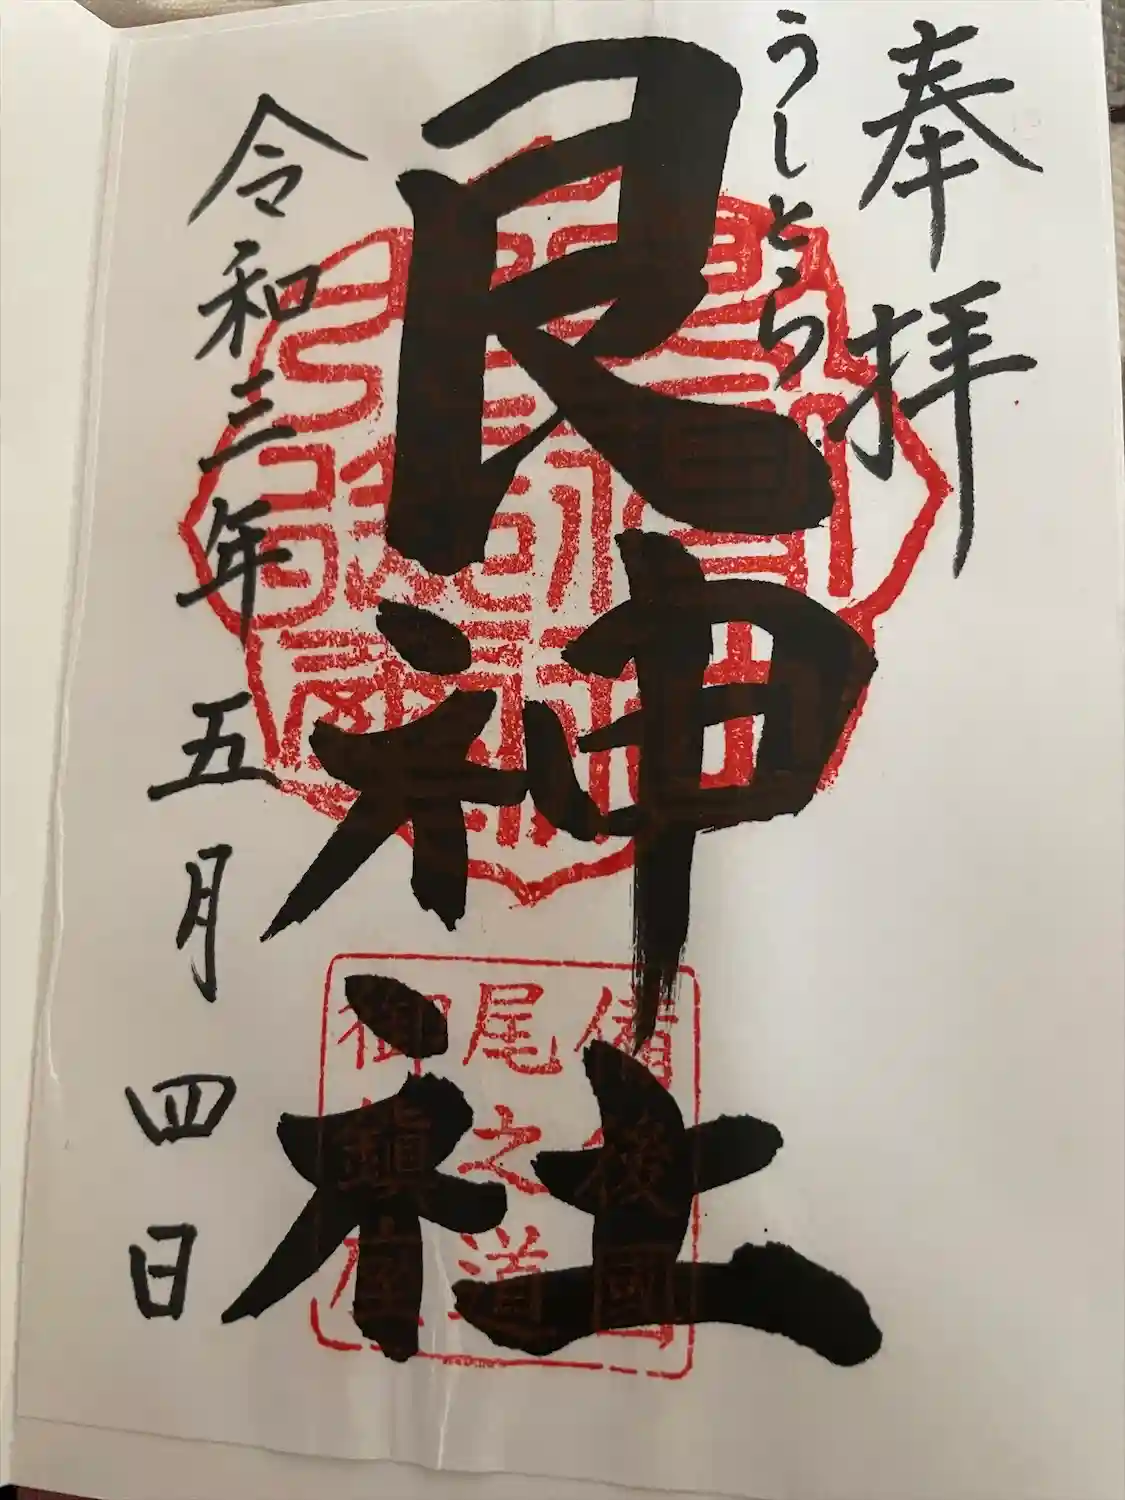 奉拝
うしとら
艮神社
令和三年五月四日
備後國
尾之道
御鎮座